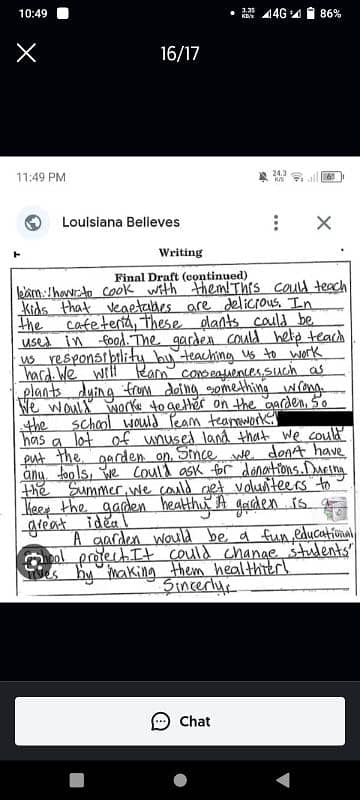 10:49
3.35 KB/s 4G 86%
16/17
11:49 PM
24.3 K/S 60
Louisiana Believes
Writing
Final Draft (continued)
learn how to cook with them! This could teach
kids that vegetables are delicious. In
the cafeteria, These plants could be
used in food. The garden could help teach
us responsibility by teaching us to work
hard. We will learn consequences, such as
plants dying from doing something wrong.
We would worke together on the garden, so
the school would learn teamwork.
has a lot of unused land that we could
put the garden on. Since we don't have
any tools, we could ask for donations. During
the summer, we could get volunteers to
keep the garden healthy. A garden is a
great idea!
A garden would be a fun, educational
project. It could change students'
by making them healthier!
Sincerly,
Chat